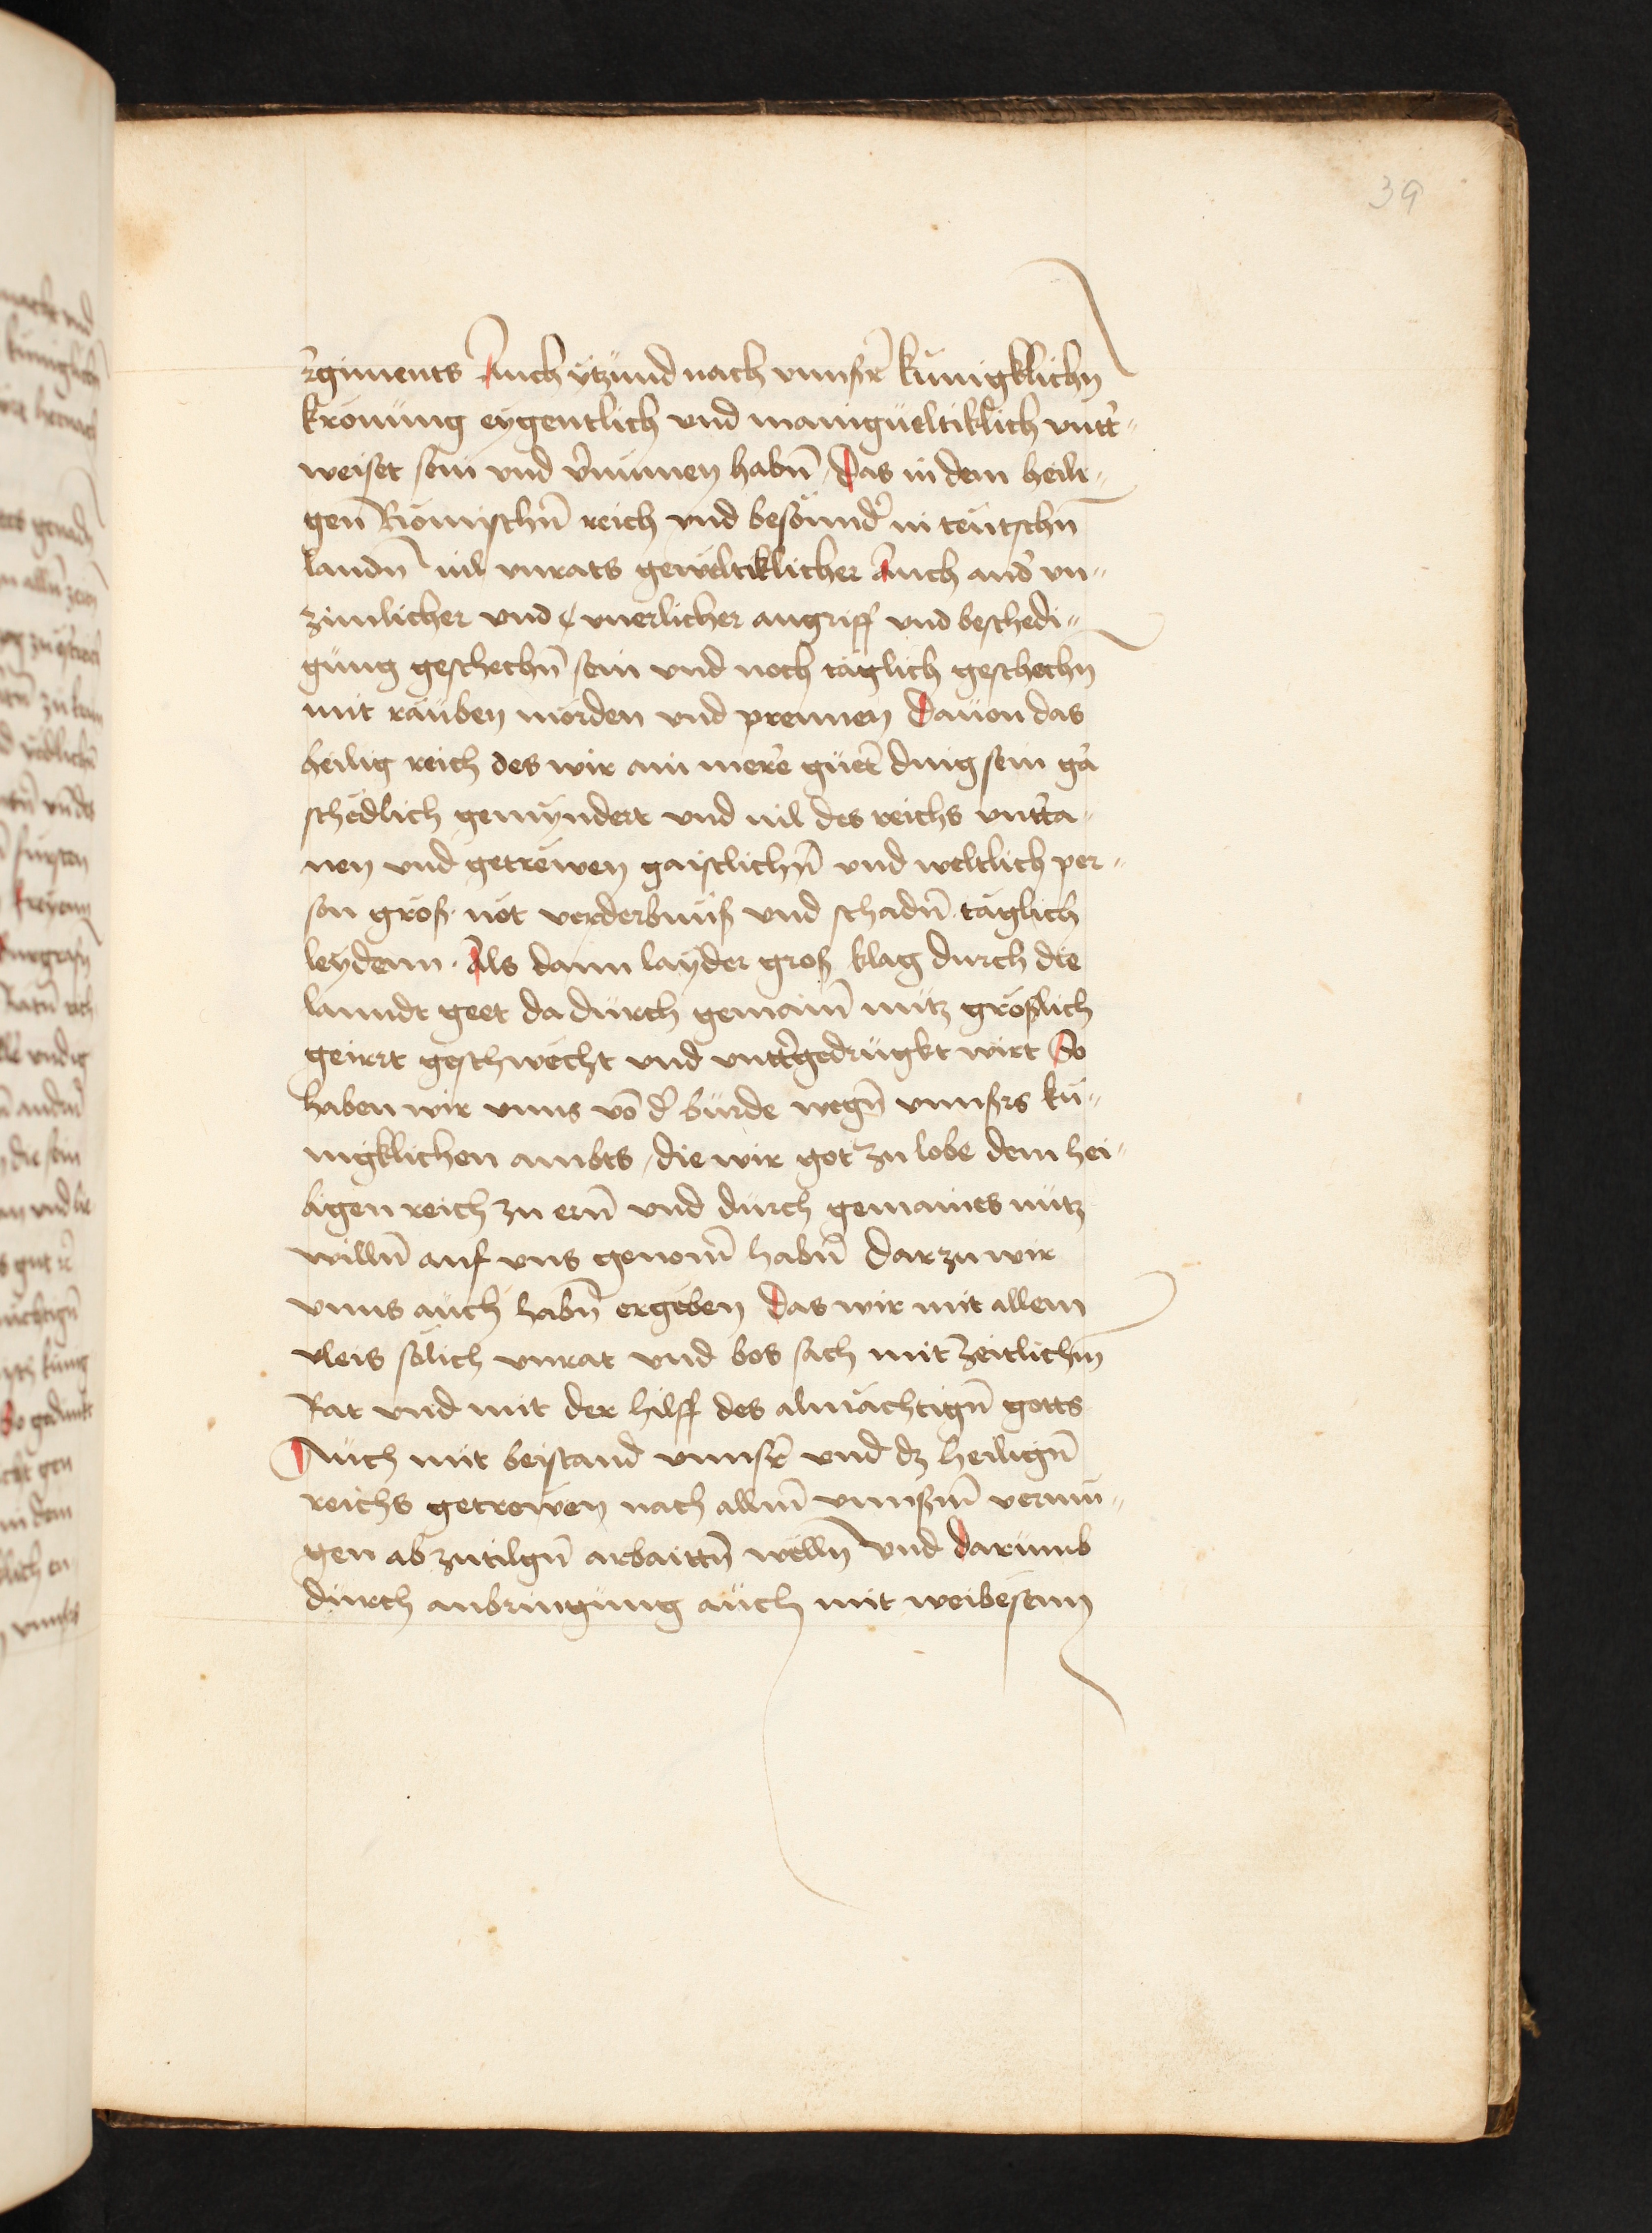 39
regiments Auch ytzund nach vnnsr̄ kunigklichn̄
kronung eygentlich vnd manigueltiklich vntt̄〟
weiset sein vnd v̄numen habn̄ / Das in dem heili〟
gen̄ Römischn̄ reich vnd besonnd̄ in teutschn̄
landn̄ uil vnrats geweltiklicher Auch and̄ vn〟
zimlicher vnd vnerlicher angriff vnd beschedi〟
gung geschechn̄ sein vnd noch täglich geschechn̄
mit rauben morden vnd prennen Dauon das
heilig reich des wir ain merer̄ guet̄ ding sein gā
schedlich gemyndert vnd uil des reichs vnt̄ta〟
nen vnd getrewen gaistlichn̄ vnd weltlich per〟
son groß not verderbnuß vnd schadn̄ täglich
leydenn . Als dann layder groß klag durch die
lanndt geet dadurch gemain̄ nutz größlich
geirrt geschwecht vnd vntt̄gedrugkt wirt So
haben wir vnns vō d̄ burde wegn̄ vnnsrs ku〟
nigklichen ambts / die wir got zu lobe dem hei〟
ligen reich zu ern̄ vnd durch gemaines nutz
willn̄ auf vns genom̄ habn̄ darzu wir
vnns auch habn̄ ergeben Das wir mit allem
vleis solich vnrat vnd bos sach mit zeitlichm̄
Rat vnd mit der hilff des almächtign̄ gotts
Auch mit beistand vnnsr̄ vnd dz heilign̄
reichs getrewen nach allm̄ vnnsm̄ vermu〟
gen abzutilgn̄ arbaittn̄ welln̄ vnd darumb
durch anbringung auch mit weibesenn